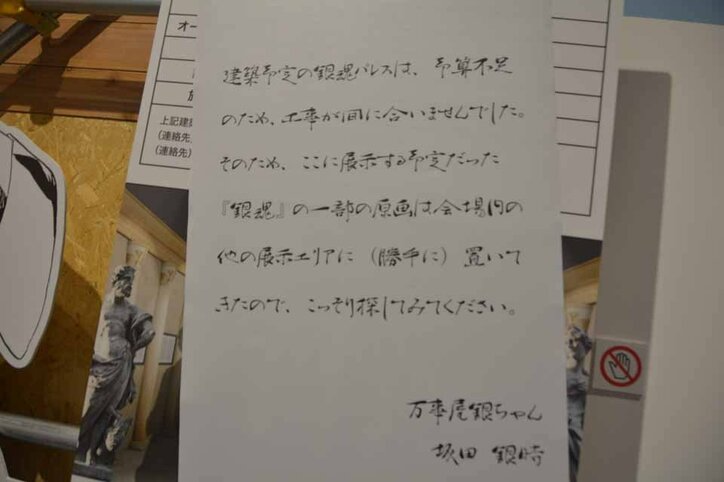 オー
上記建
(連絡先
(連絡先)
建築予定の銀魂パレスは、予算不足
のため、工事が間に合いませんでした。
そのため、ここに展示する予定だった
『銀魂』の一部の原画は会場内の
他の展示エリアに(勝手に)置いて
きたので、こっそり探してみてください。
万事屋銀ちゃん
坂田 銀時